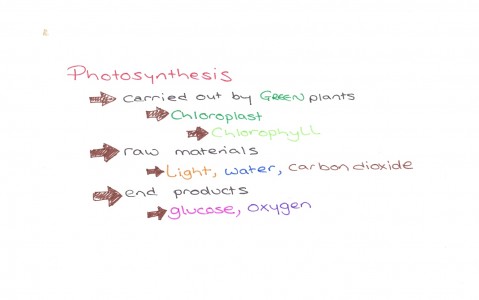 Photosynthesis
carried out by GREEN plants
Chloroplast
Chlorophyll
raw materials
Light, water, carbon dioxide
end products
glucose, oxygen